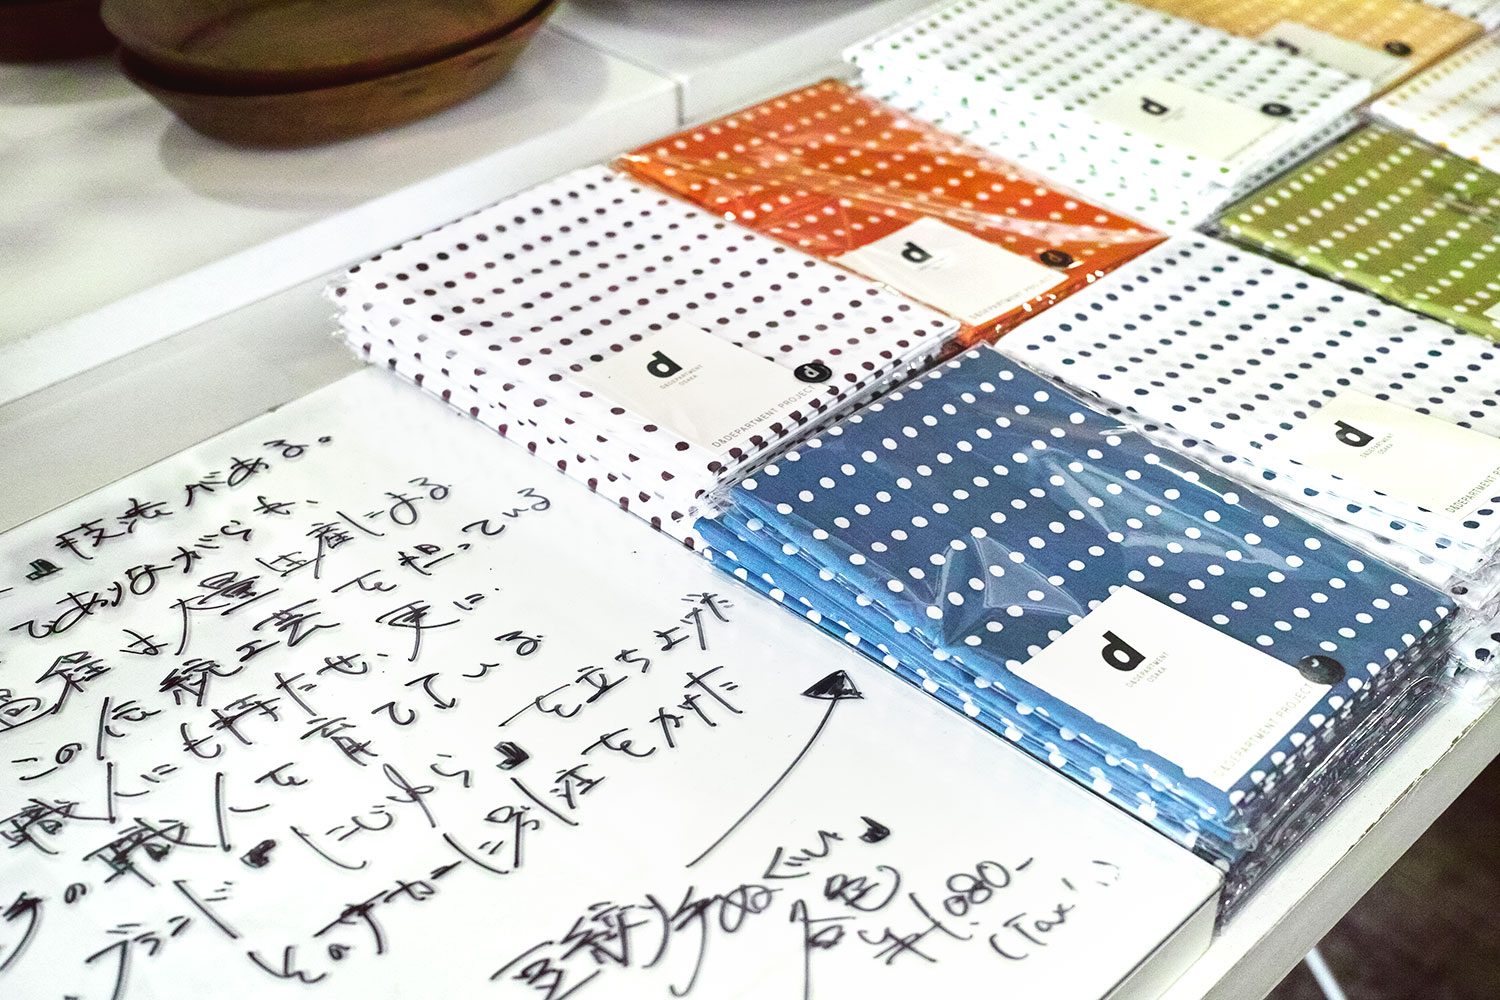 技法がある。
でありながらも、
過程は大量生産による
この伝統工芸を担っている
職人にも持たせ、更に
の職人を育てている
ブランド・にじゆら を立ち上げた
そのナカーに別注をかけた
豆絞り手ぬぐい
各色
¥1.080-
(Tax
d
D&DEPARTMENT
OSAKA
d
D&DEPARTMENT PROJECT
d
D&DEPARTMENT
OSAKA
D&DEPARTMENT PROJECT
d
d
d
D&DEPARTMENT
OSAKA